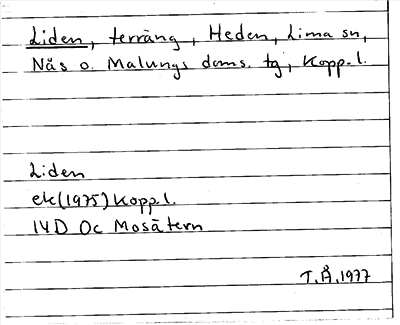 Liden, terräng, Heden, Lima sn,
Nås o. Malungs doms. tg, Kopp.l.
Liden
ek(1975)Kopp.l.
14D Oc Mosätern
T.Å, 1977